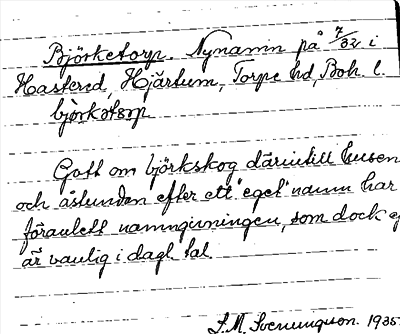 Björketorp. Nynamn på 7/32 i
Hastered, Hjärtum, Torpe hd, Boh. l.
björkotorp
Gott om björkskog därintill husen
och åstundan efter ett "eget" namn har
föranlett namngivningen, som dock ej
är vanlig i dagl. tal.
S.M. Svenungson. 1935